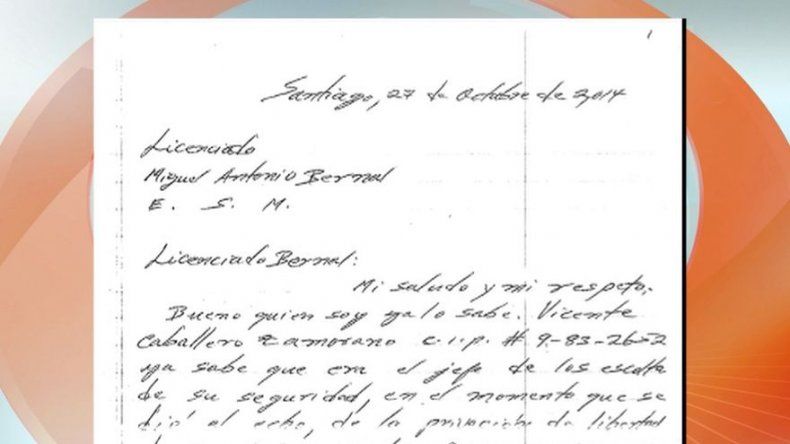 1
Santiago, 27 de Octubre de 2,014
Licenciado
Miguel Antonio Bernal
E. S. M.
Licenciado Bernal:
Mi saludo y mi respeto.
Bueno quien soy ya lo sabe. Vicente
Caballero Zamorano c.i.p. # 9-83-2652
ya sabe que era el jefe de los escolta
de su seguridad, en el momento que se
dió al acto, de la privación de libertad